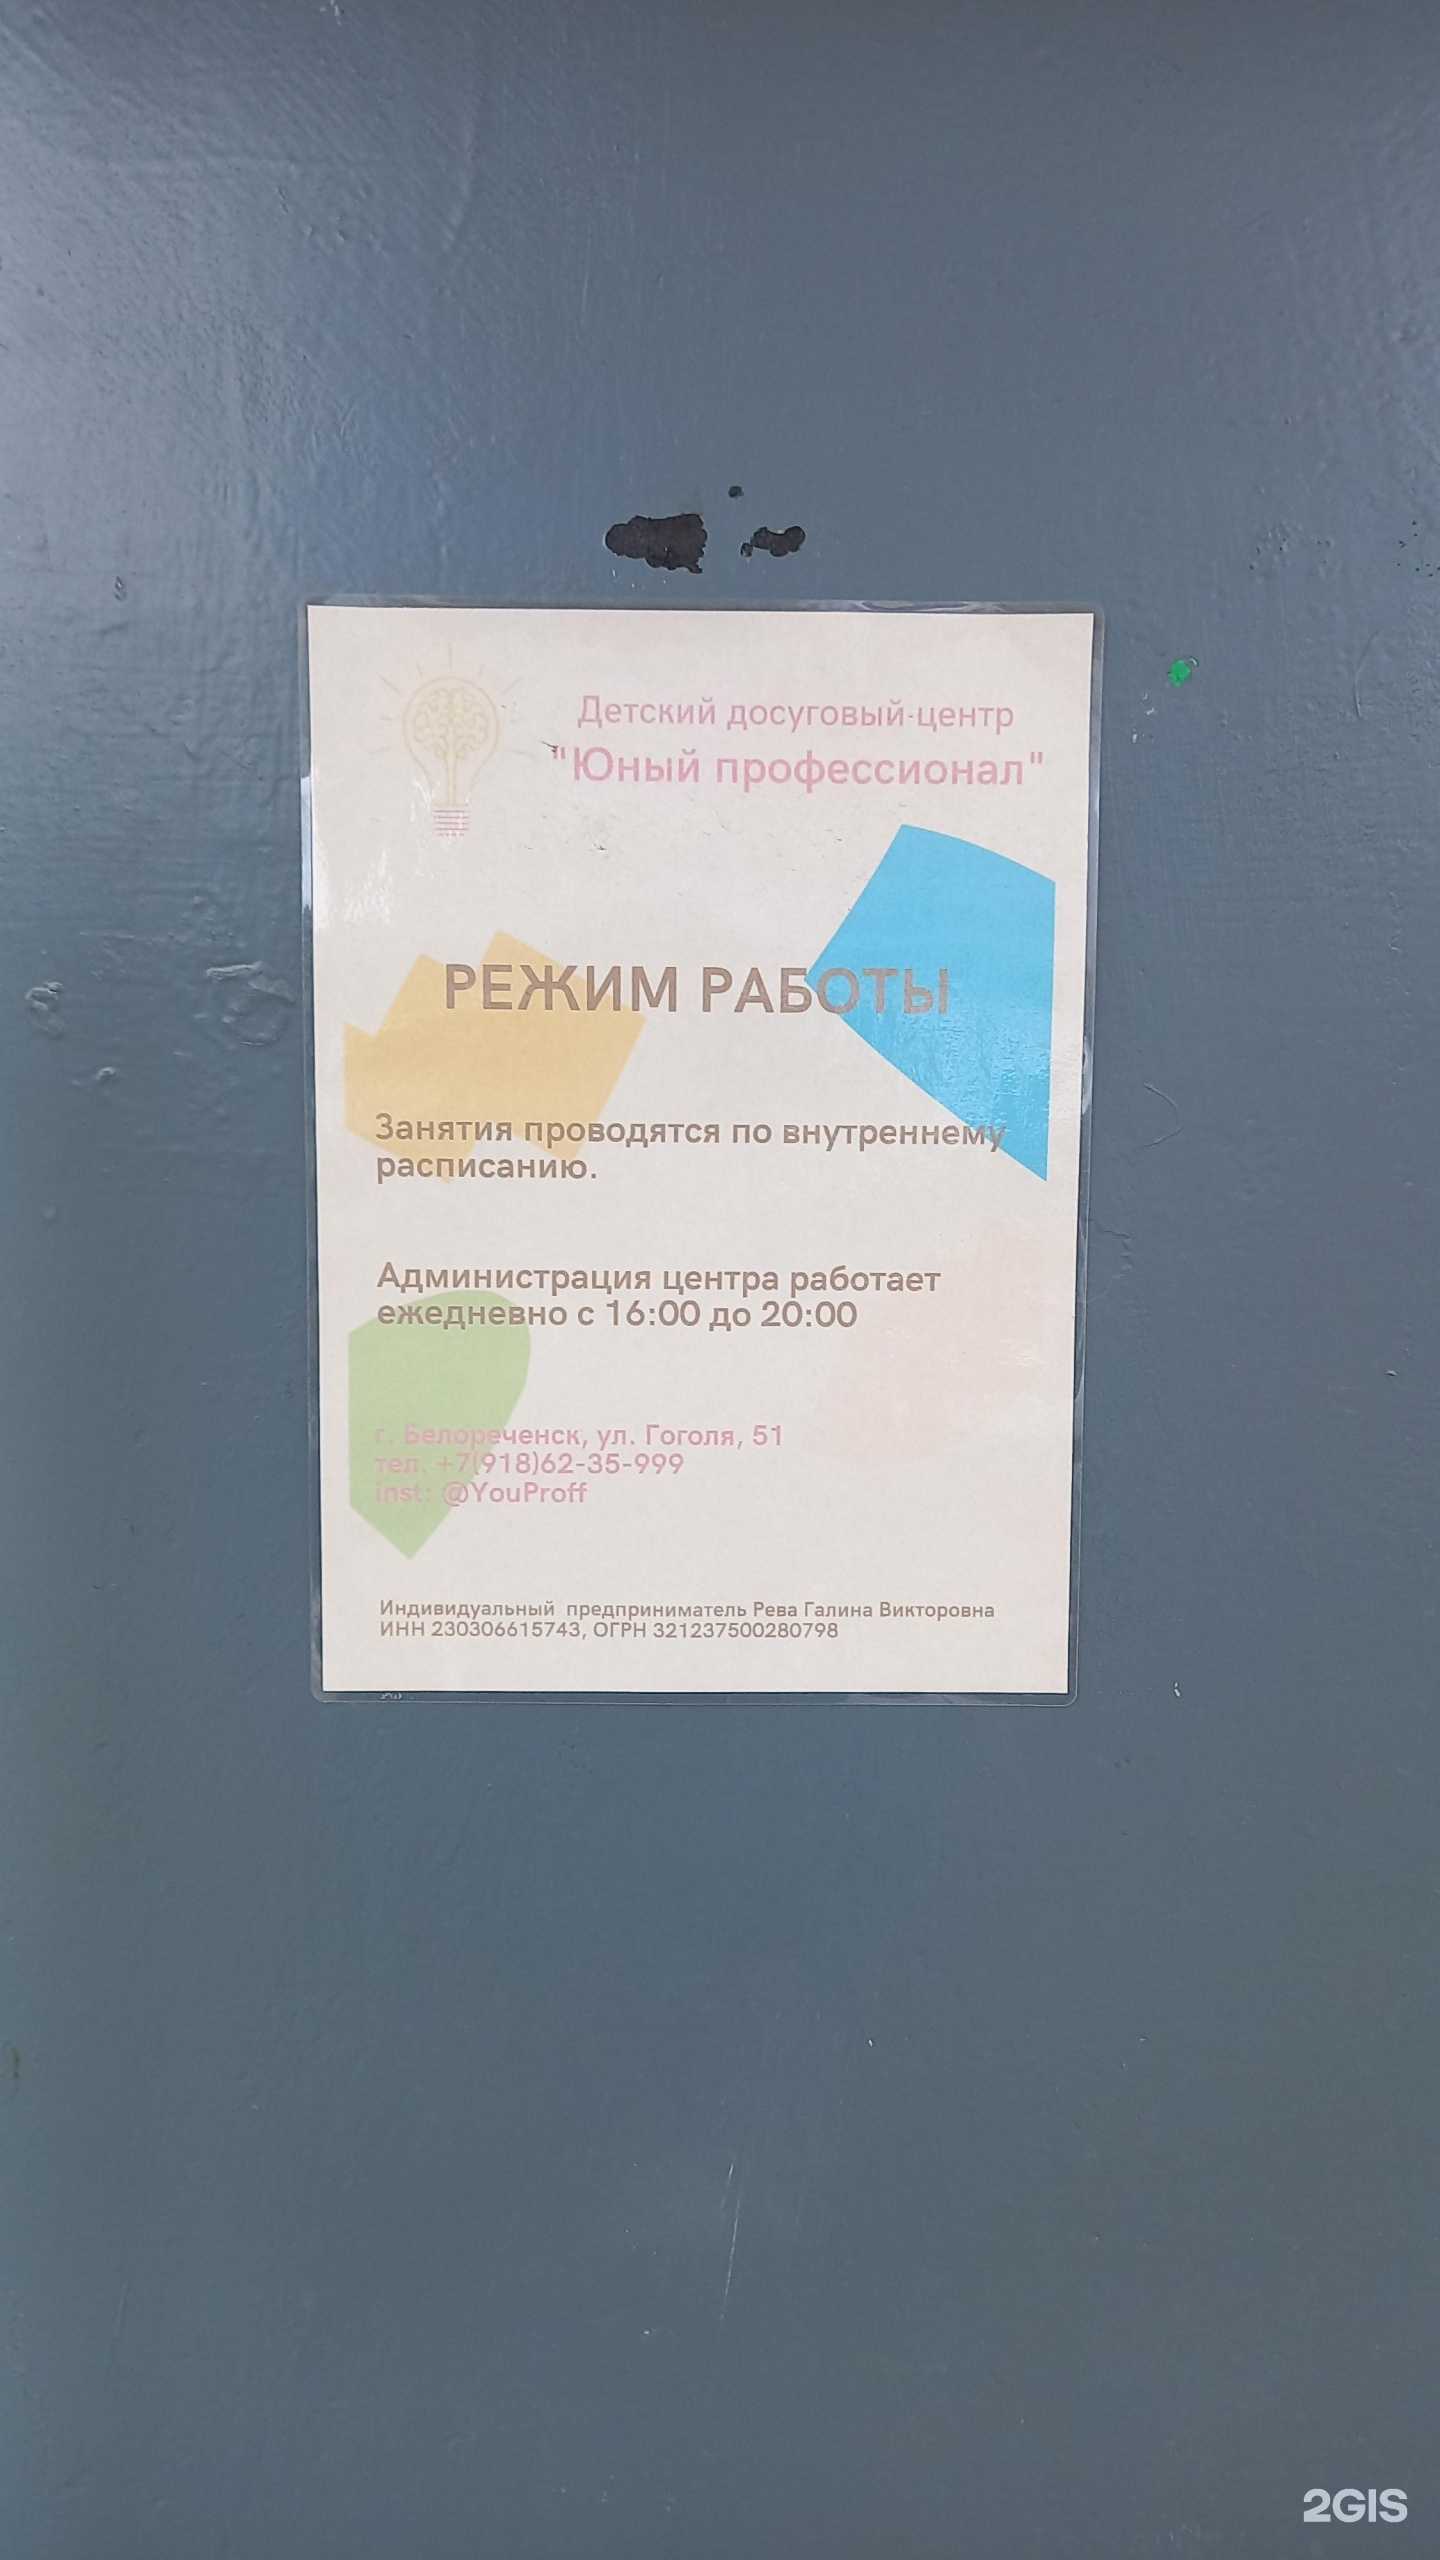 Детский досуговый центр
"Юный профессионал"
РЕЖИМ РАБОТЫ
Занятия проводятся по внутреннему
расписанию.
Администрация центра работает
ежедневно с 16:00 до 20:00
г. Белореченск, ул. Гоголя, 51
тел. +7(918)62-35-999
inst: @YouProff
Индивидуальный предприниматель Рева Галина Викторовна
ИНН 230306615743, ОГРН 321237500280798
2GIS